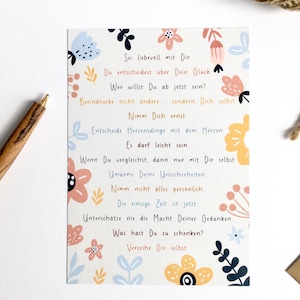 Sei liebevoll mit Dir
Du entscheidest über Dein Glück
Wer willst Du ab jetzt sein?
Beeindrucke nicht andere - sondern Dich selbst
Nimm Dich ernst
Entscheide Herzensdinge mit dem Herzen
Es darf leicht sein
Wenn Du vergleichst, dann nur mit Dir selbst
Umarme Deine Unsicherheiten
Nimm nicht alles persönlich
Die einzige Zeit ist jetzt
Unterschätze nie die Macht Deiner Gedanken
Was hast Du zu schenken?
Verzeihe Dir selbst